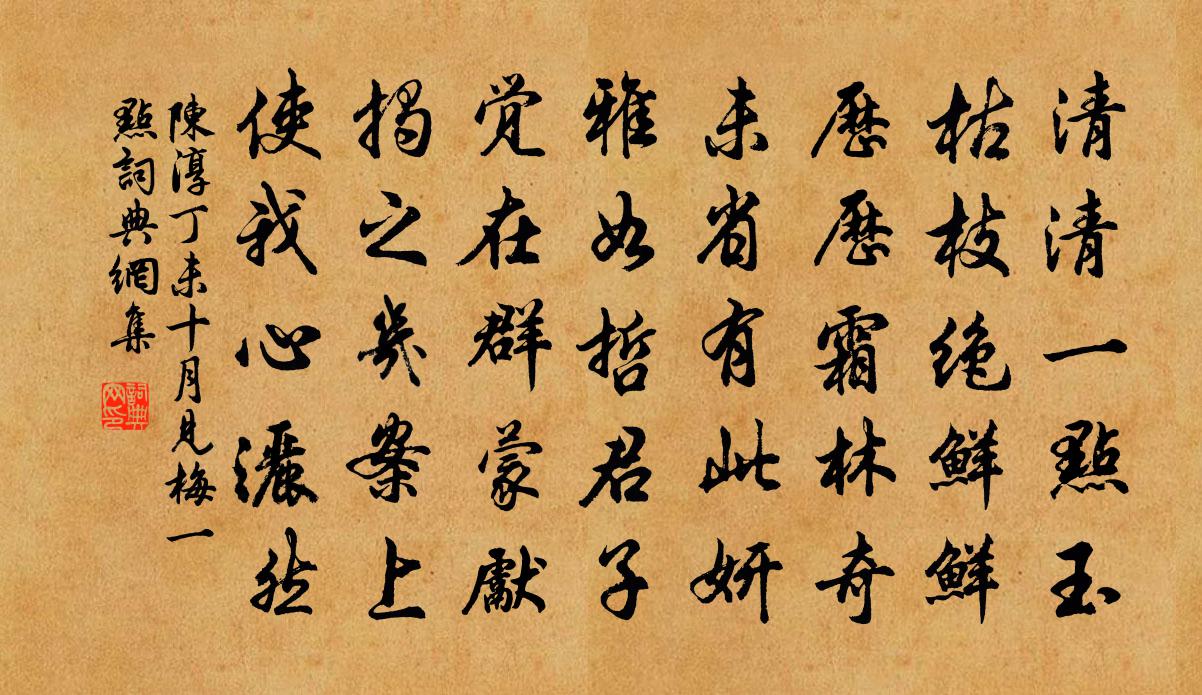 清清一點玉
枯枝絶鮮鮮
歷歷霜林奇
未省有此妍
雅如哲君子
覚在群蒙獻
揭之幾案上
使我心灑然
陳淳丁未十月見梅一
點詞典網集
詞典网印